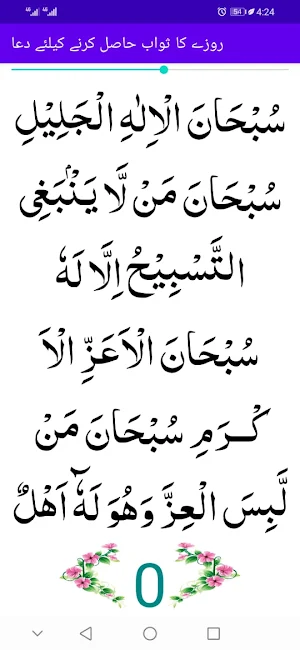 4:24
روزے کا ثواب حاصل کرنے کیلئے دعا
سُبْحَانَ الْاِلٰهِ الْجَلِيْلِ
سُبْحَانَ مَنْ لَّا يَنْۢبَغِى
التَّسْبِيْحُ اِلَّا لَهٗ
سُبْحَانَ الْاَعَزِّ الْاَ
كْـرَمِ سُبْحَانَ مَنْ
لَّبِسَ الْعِزَّ وَهُوَ لَهٗٓ اَهْلٌ
0